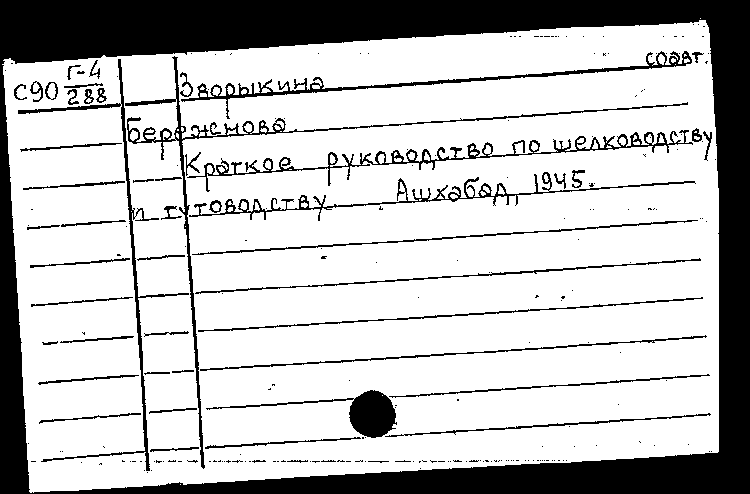 соавт.
С90 Г-4/288 Зворыкина
Бережнова.
Краткое руководство по шелководству
и тутоводству. Ашхабад, 1945.